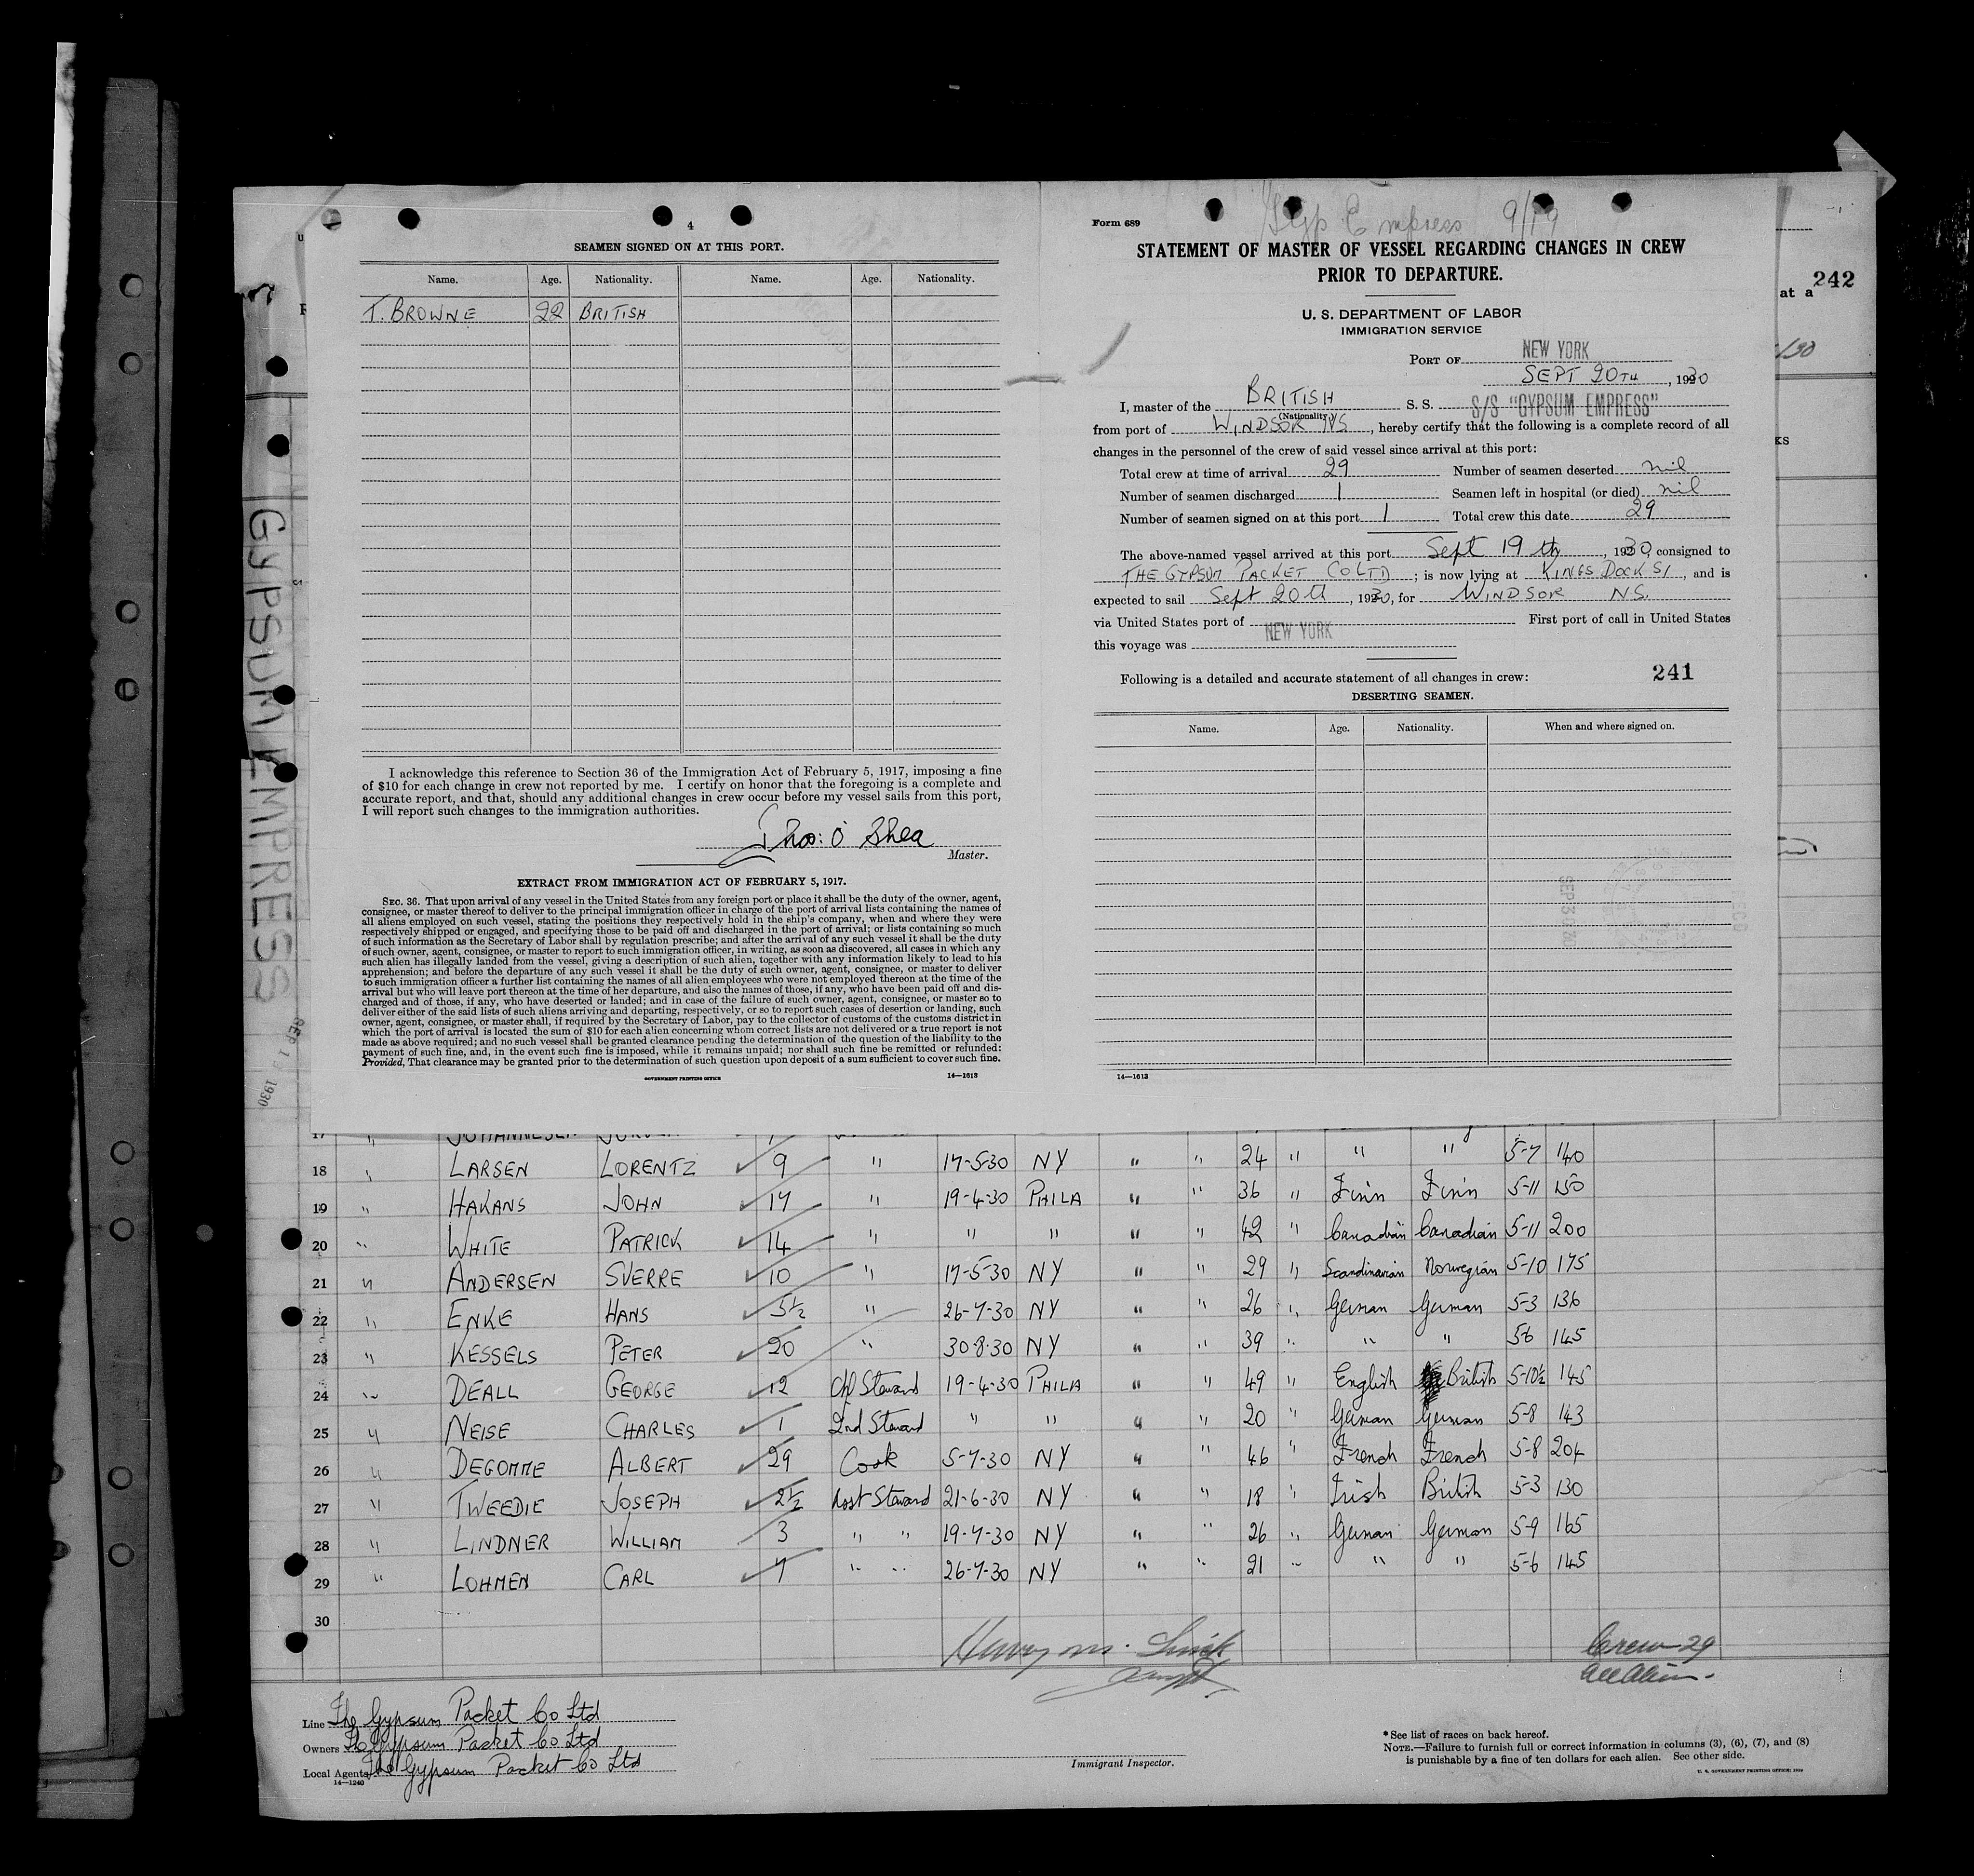 4
SEAMEN SIGNED ON AT THIS PORT.
Name. Age. Nationality. Name. Age. Nationality.
T. BROWNE 22 BRITISH
I acknowledge this reference to Section 36 of the Immigration Act of February 5, 1917, imposing a fine
of $10 for each change in crew not reported by me. I certify on honor that the foregoing is a complete and
accurate report, and that, should any additional changes in crew occur before my vessel sails from this port,
I will report such changes to the immigration authorities.
Thos: O'Shea
Master.
EXTRACT FROM IMMIGRATION ACT OF FEBRUARY 5, 1917.
SEC. 36. That upon arrival of any vessel in the United States from any foreign port or place it shall be the duty of the owner, agent,
consignee, or master thereof to deliver to the principal immigration officer in charge of the port of arrival lists containing the names of
all aliens employed on such vessel, stating the positions they respectively hold in the ship's company, when and where they were
respectively shipped or engaged, and specifying those to be paid off and discharged in the port of arrival; or lists containing so much
of such information as the Secretary of Labor shall by regulation prescribe; and after the arrival of any such vessel it shall be the duty
of such owner, agent, consignee, or master to report to such immigration officer, in writing, as soon as discovered, all cases in which any
such alien has illegally landed from the vessel, giving a description of such alien, together with any information likely to lead to his
apprehension; and before the departure of any such vessel it shall be the duty of such owner, agent, consignee, or master to deliver
to such immigration officer a further list containing the names of all alien employees who were not employed thereon at the time of the
arrival but who will leave port thereon at the time of her departure, and also the names of those, if any, who have been paid off and dis-
charged and of those, if any, who have deserted or landed; and in case of the failure of such owner, agent, consignee, or master so to
deliver either of the said lists of such aliens arriving and departing, respectively, or so to report such cases of desertion or landing, such
owner, agent, consignee, or master shall, if required by the Secretary of Labor, pay to the collector of customs of the customs district in
which the port of arrival is located the sum of $10 for each alien concerning whom correct lists are not delivered or a true report is not
made as above required; and no such vessel shall be granted clearance pending the determination of the question of the liability to the
payment of such fine, and, in the event such fine is imposed, while it remains unpaid; nor shall such fine be remitted or refunded:
Provided, That clearance may be granted prior to the determination of such question upon deposit of a sum sufficient to cover such fine.
GOVERNMENT PRINTING OFFICE 14—1613
Form 689
Gyp Empress 9/19
STATEMENT OF MASTER OF VESSEL REGARDING CHANGES IN CREW
PRIOR TO DEPARTURE.
U. S. DEPARTMENT OF LABOR
IMMIGRATION SERVICE
PORT OF NEW YORK
SEPT 20TH, 1930
I, master of the BRITISH S. S. S/S "GYPSUM EMPRESS"
(Nationality.)
from port of WINDSOR NS, hereby certify that the following is a complete record of all
changes in the personnel of the crew of said vessel since arrival at this port:
Total crew at time of arrival 29 Number of seamen deserted nil
Number of seamen discharged 1 Seamen left in hospital (or died) nil
Number of seamen signed on at this port 1 Total crew this date 29
The above-named vessel arrived at this port Sept 19th, 1930, consigned to
THE GYPSUM PACKET CO LTD; is now lying at KINGS DOCK SI, and is
expected to sail Sept 20th, 1930, for WINDSOR NS.
via United States port of First port of call in United States
this voyage was NEW YORK
Following is a detailed and accurate statement of all changes in crew: 241
DESERTING SEAMEN.
Name. Age. Nationality. When and where signed on.
SEP 30 '30
14—1613
at a 242
/30
KS
GYPSUM EMPRESS
SEP 19 1930
17 " JOHANNESEN
18 " LARSEN LORENTZ 9 " 17-5-30 NY " " 24 " " " 5-7 140
19 " HAKANS JOHN 17 " 19-4-30 PHILA " " 36 " Finn Finn 5-11 150
20 " WHITE PATRICK 14 " " " " " 42 " Canadian Canadian 5-11 200
21 " ANDERSEN SVERRE 10 " 17-5-30 NY " " 29 " Scandinavian Norwegian 5-10 175
22 " ENKE HANS 5½ " 26-7-30 NY " " 26 " German German 5-3 136
23 " KESSELS PETER 20 " 30-8-30 NY " " 39 " " " 5-6 145
24 " DEALL GEORGE 12 Chf Steward 19-4-30 PHILA " " 49 " English British 5-10½ 145
25 " NEISE CHARLES 1 2nd Steward " " " " 20 " German German 5-8 143
26 " DEGOMME ALBERT 29 Cook 5-7-30 NY " " 46 " French French 5-8 204
27 " TWEEDIE JOSEPH 2½ Asst Steward 21-6-30 NY " " 18 " Irish British 5-3 130
28 " LINDNER WILLIAM 3 " " 19-7-30 NY " " 26 " German German 5-9 165
29 " LOHMEN CARL 7 " " 26-7-30 NY " " 21 " " " 5-6 145
30
Crew 29
all alien.
Line The Gypsum Packet Co Ltd
Owners The Gypsum Packet Co Ltd
Local Agents The Gypsum Packet Co Ltd
14—1240
Immigrant Inspector.
* See list of races on back hereof.
NOTE.—Failure to furnish full or correct information in columns (3), (6), (7), and (8)
is punishable by a fine of ten dollars for each alien. See other side.